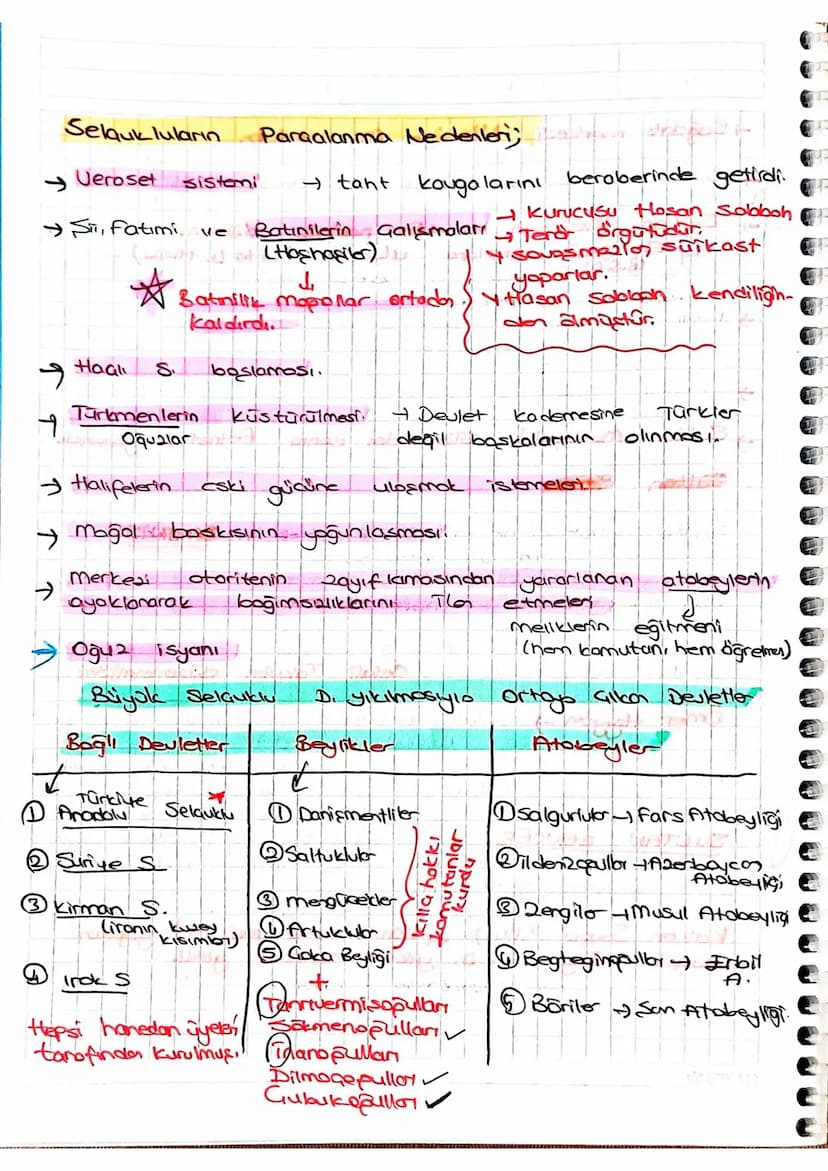 Selçukluların Parçalanma Nedenleri;
→ Veraset sistemi → taht kavgalarını beraberinde getirdi.
→ Şii, Fatımi ve Batınilerin Çalışmaları
(Haşhaşiler)
→ kurucusu Hasan Sabbah
→ Terör örgütüdür.
→ savaşmazlar suikast
yaparlar.
→ Hasan Sabbah kendiliğin-
den ölmüştür.
☆ Batınilik moğollar ortadan
kaldırdı.
→ Haçlı S. başlaması.
→ Türkmenlerin küstürülmesi. → Devlet kademesine Türkler
Oğuzlar
değil başkalarının alınması.
→ Halifelerin eski gücüne ulaşmak istemeleri
→ moğol baskısının yoğunlaşması.
→ merkezi otoritenin zayıflamasından yararlanan atabeylerin
ayaklanarak bağımsızlıklarını ilan etmeleri
meliklerin eğitmeni
(hem komutan, hem öğretmen)
→ Oğuz isyanı
Büyük Selçuklu D. yıkılmasıyla Ortaya Çıkan Devletler
Bağlı Devletler
① Türkiye
Anadolu Selçuklu
② Suriye S
③ Kirman S.
(iranın kuzey
kısımları)
④ Irak S
Hepsi hanedan üyeleri
tarafından kurulmuş.
Beylikler
① Danişmentliler
② Saltuklular
③ mengücekler
④ Artuklular
⑤ Çaka Beyliği
kılıç hakkı
komutanlar
kurdu
+
Tanrıvermişoğulları
Sökmenoğulları ✓
İnanoğulları
Dilmaçoğulları ✓
Çubukoğulları ✓
Atabeyler
① Salgurlular → Fars Atabeyliği
② ildenizoğulları → Azerbaycan
Atabeyliği
③ Zengiler → Musul Atabeyliği
④ Begteginoğulları → Erbil
A.
⑤ Böriler → Şam Atabeyliği.